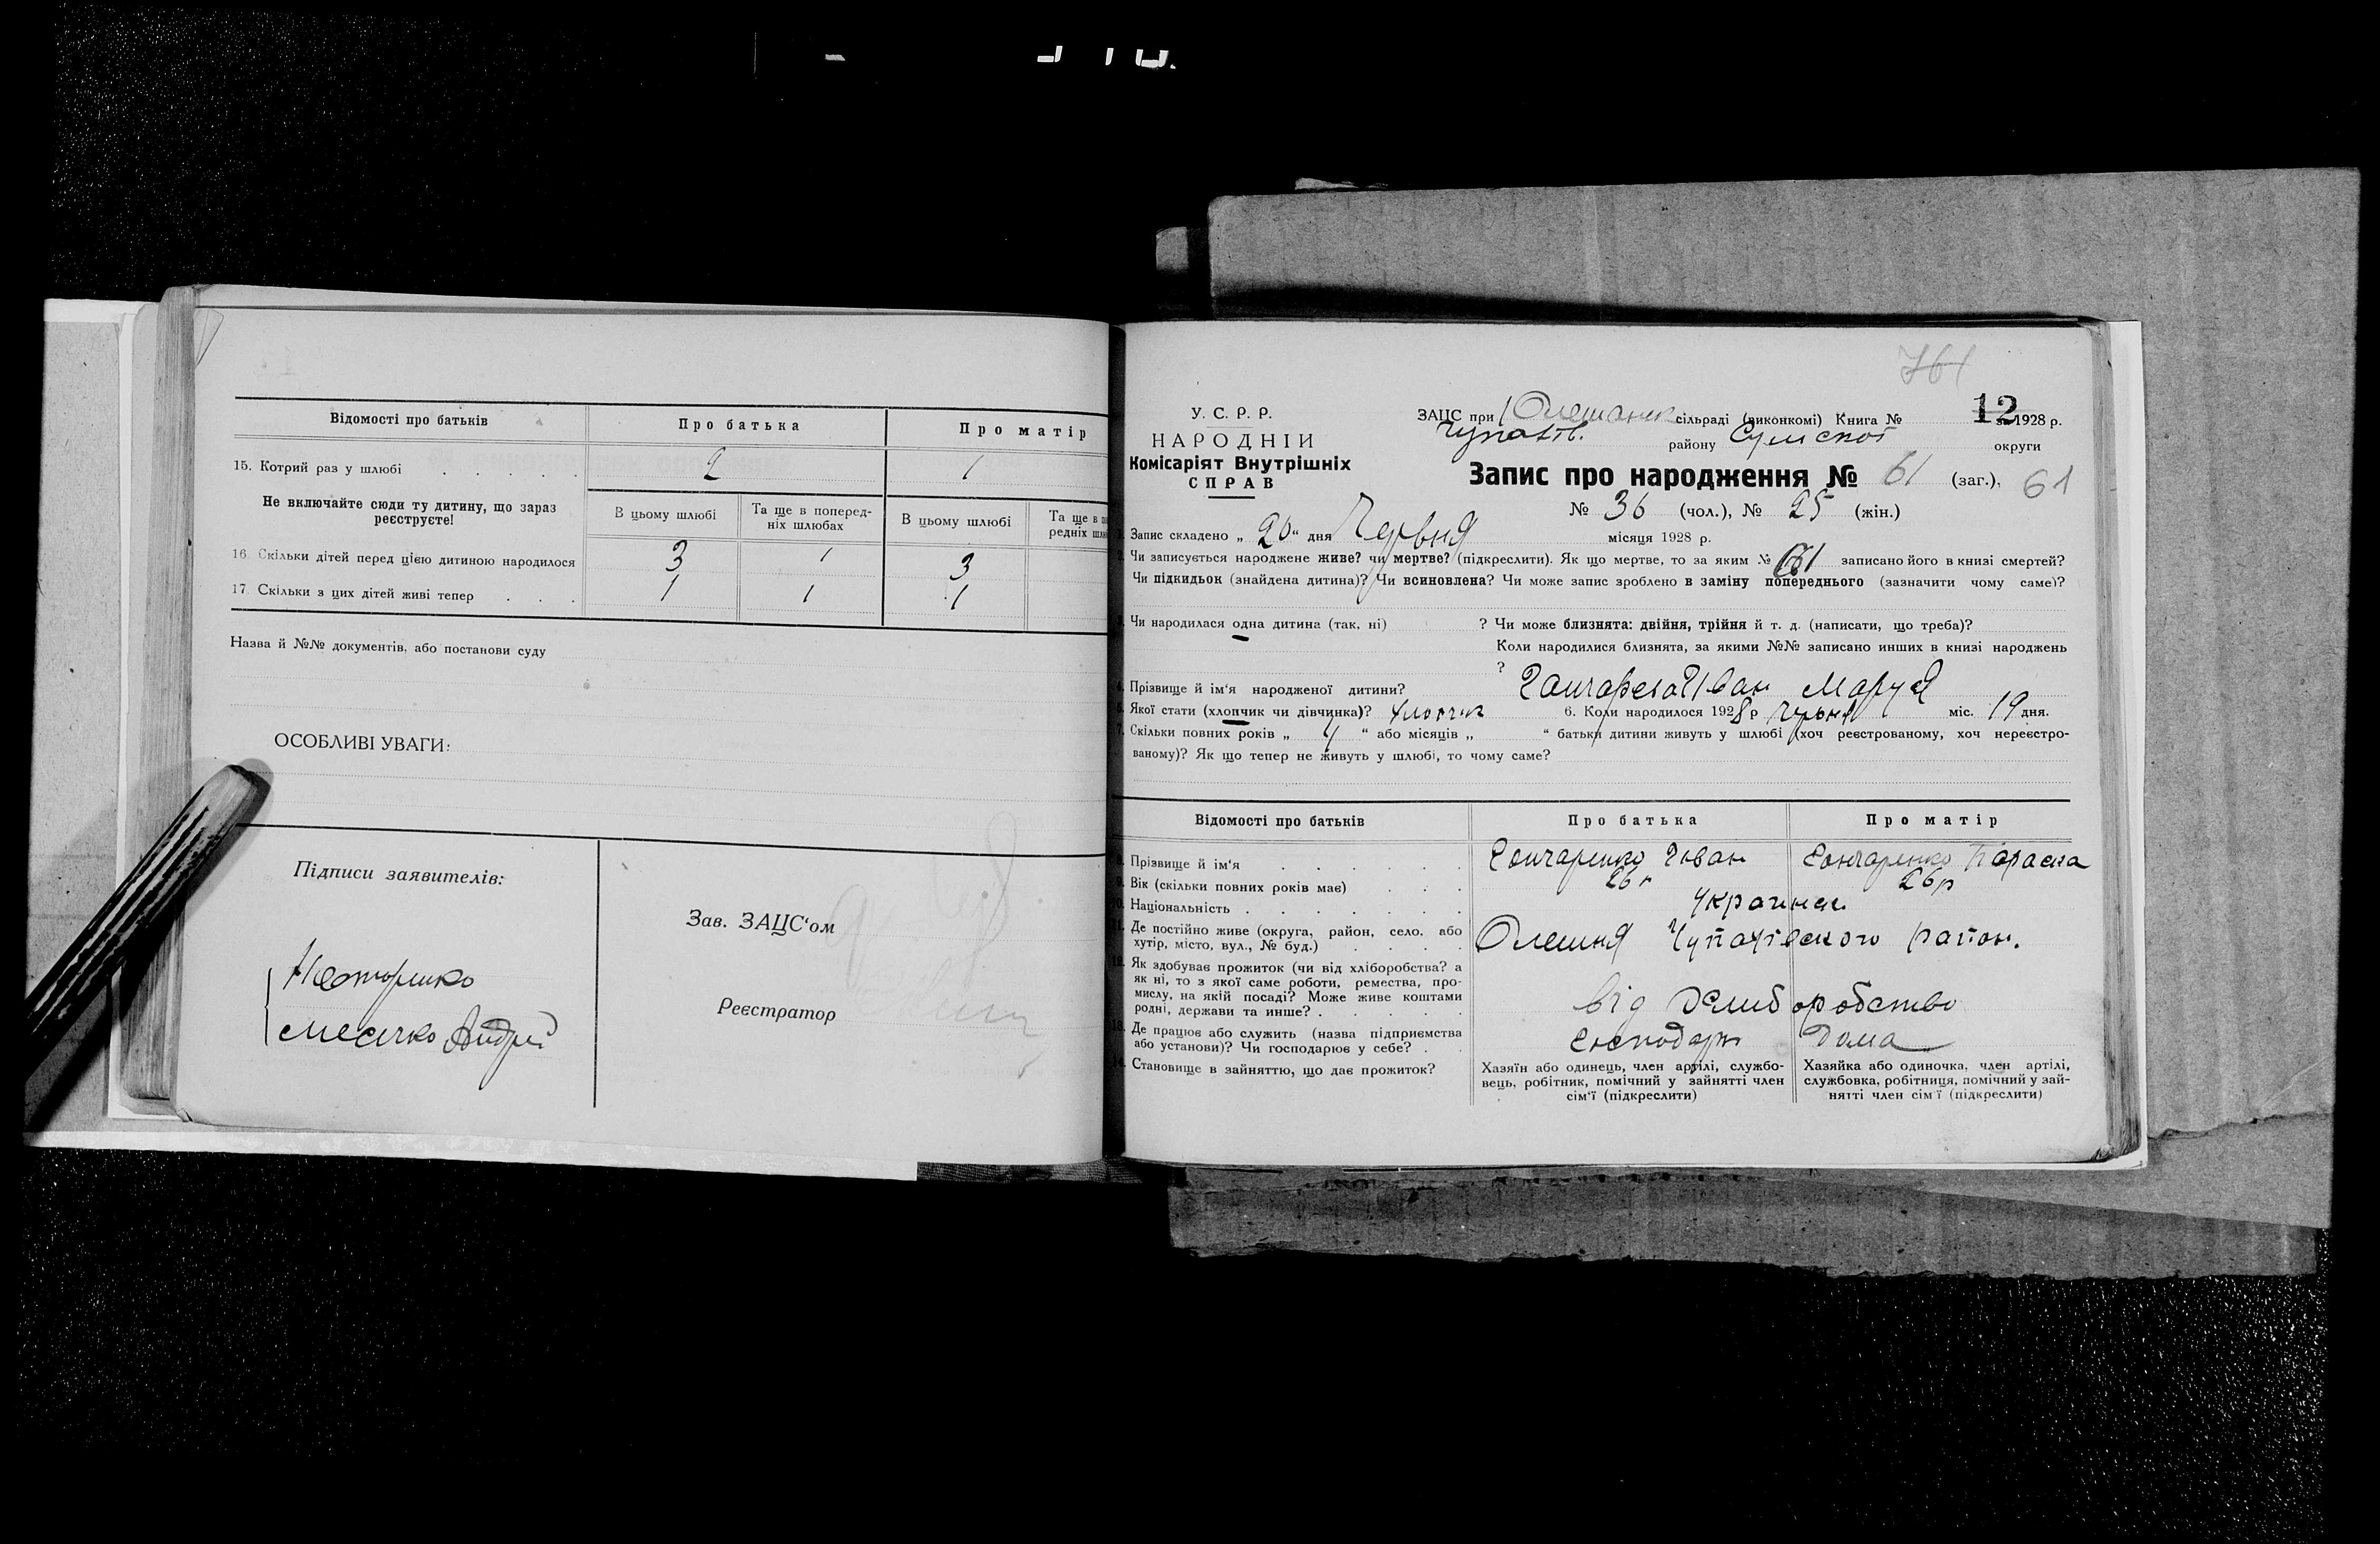 Відомості про батьків
Про батька
Про матір
15. Котрий раз у шлюбі
2
1
Не включайте сюди ту дитину, що зараз
реєструєте!
В цьому шлюбі
Та ще в поперед-
ніх шлюбах
В цьому шлюбі
Та ще в по
редніх шлю
16. Скільки дітей перед цією дитиною народилося
3
1
3
17. Скільки з цих дітей живі тепер
1
1
1
Назва й №№ документів, або постанови суду
ОСОБЛИВІ УВАГИ:
Підписи заявителів:
Андрій
Зав. ЗАЦС'ом
Реєстратор
761
У. С. Р. Р.
НАРОДНІЙ
Комісаріят Внутрішніх
СПРАВ
ЗАЦС при Олешанск сільраді (виконкомі) Книга № 12 за 1928 р.
Чупахів. району Сумской округи
Запис про народження № 61 (заг.), 61
№ 36 (чол.), № 25 (жін.)
Запис складено „ 20 “ дня Червня місяця 1928 р.
Чи записується народжене живе? чи мертве? (підкреслити). Як що мертве, то за яким № 61 записано його в книзі смертей?
Чи підкидьок (знайдена дитина)? Чи всиновлена? Чи може запис зроблено в заміну попереднього (зазначити чому саме)?
Чи народилася одна дитина (так, ні) ? Чи може близнята: двійня, трійня й т. д. (написати, що треба)?
Коли народилися близнята, за якими №№ записано инших в книзі народжень
?
Прізвище й ім'я народженої дитини? Іван
Якої стати (хлопчик чи дівчинка)? хлопчик 6. Коли народилося 1928 р червня міс. 19 дня.
Скільки повних років „ 4 “ або місяців „ “ батьки дитини живуть у шлюбі (хоч реєстрованому, хоч нереєстро-
ваному)? Як що тепер не живуть у шлюбі, то чому саме?
Відомості про батьків
Про батька
Про матір
Прізвище й ім'я
Гончаренко Іван
Гончаренко Параска
Вік (скільки повних років має)
26 р
26 р
Національність
Українци
Де постійно живе (округа, район, село, або
хутір, місто, вул., № буд.)
Олешня Чупахівского район.
Як здобуває прожиток (чи від хліборобства? а
як ні, то з якої саме роботи, ремества, про-
мислу, на якій посаді? Може живе коштами
родні, держави та инше?
від хлиборобство
Де працює або служить (назва підприємства
або установи)? Чи господарює у себе?
господарь
дома
Становище в зайняттю, що дає прожиток?
Хазяїн або одинець, член артілі, службо-
вець, робітник, помічний у зайнятті член
сім'ї (підкреслити)
Хазяйка або одиночка, член артілі,
службовка, робітниця, помічний у зай-
нятті член сім'ї (підкреслити)